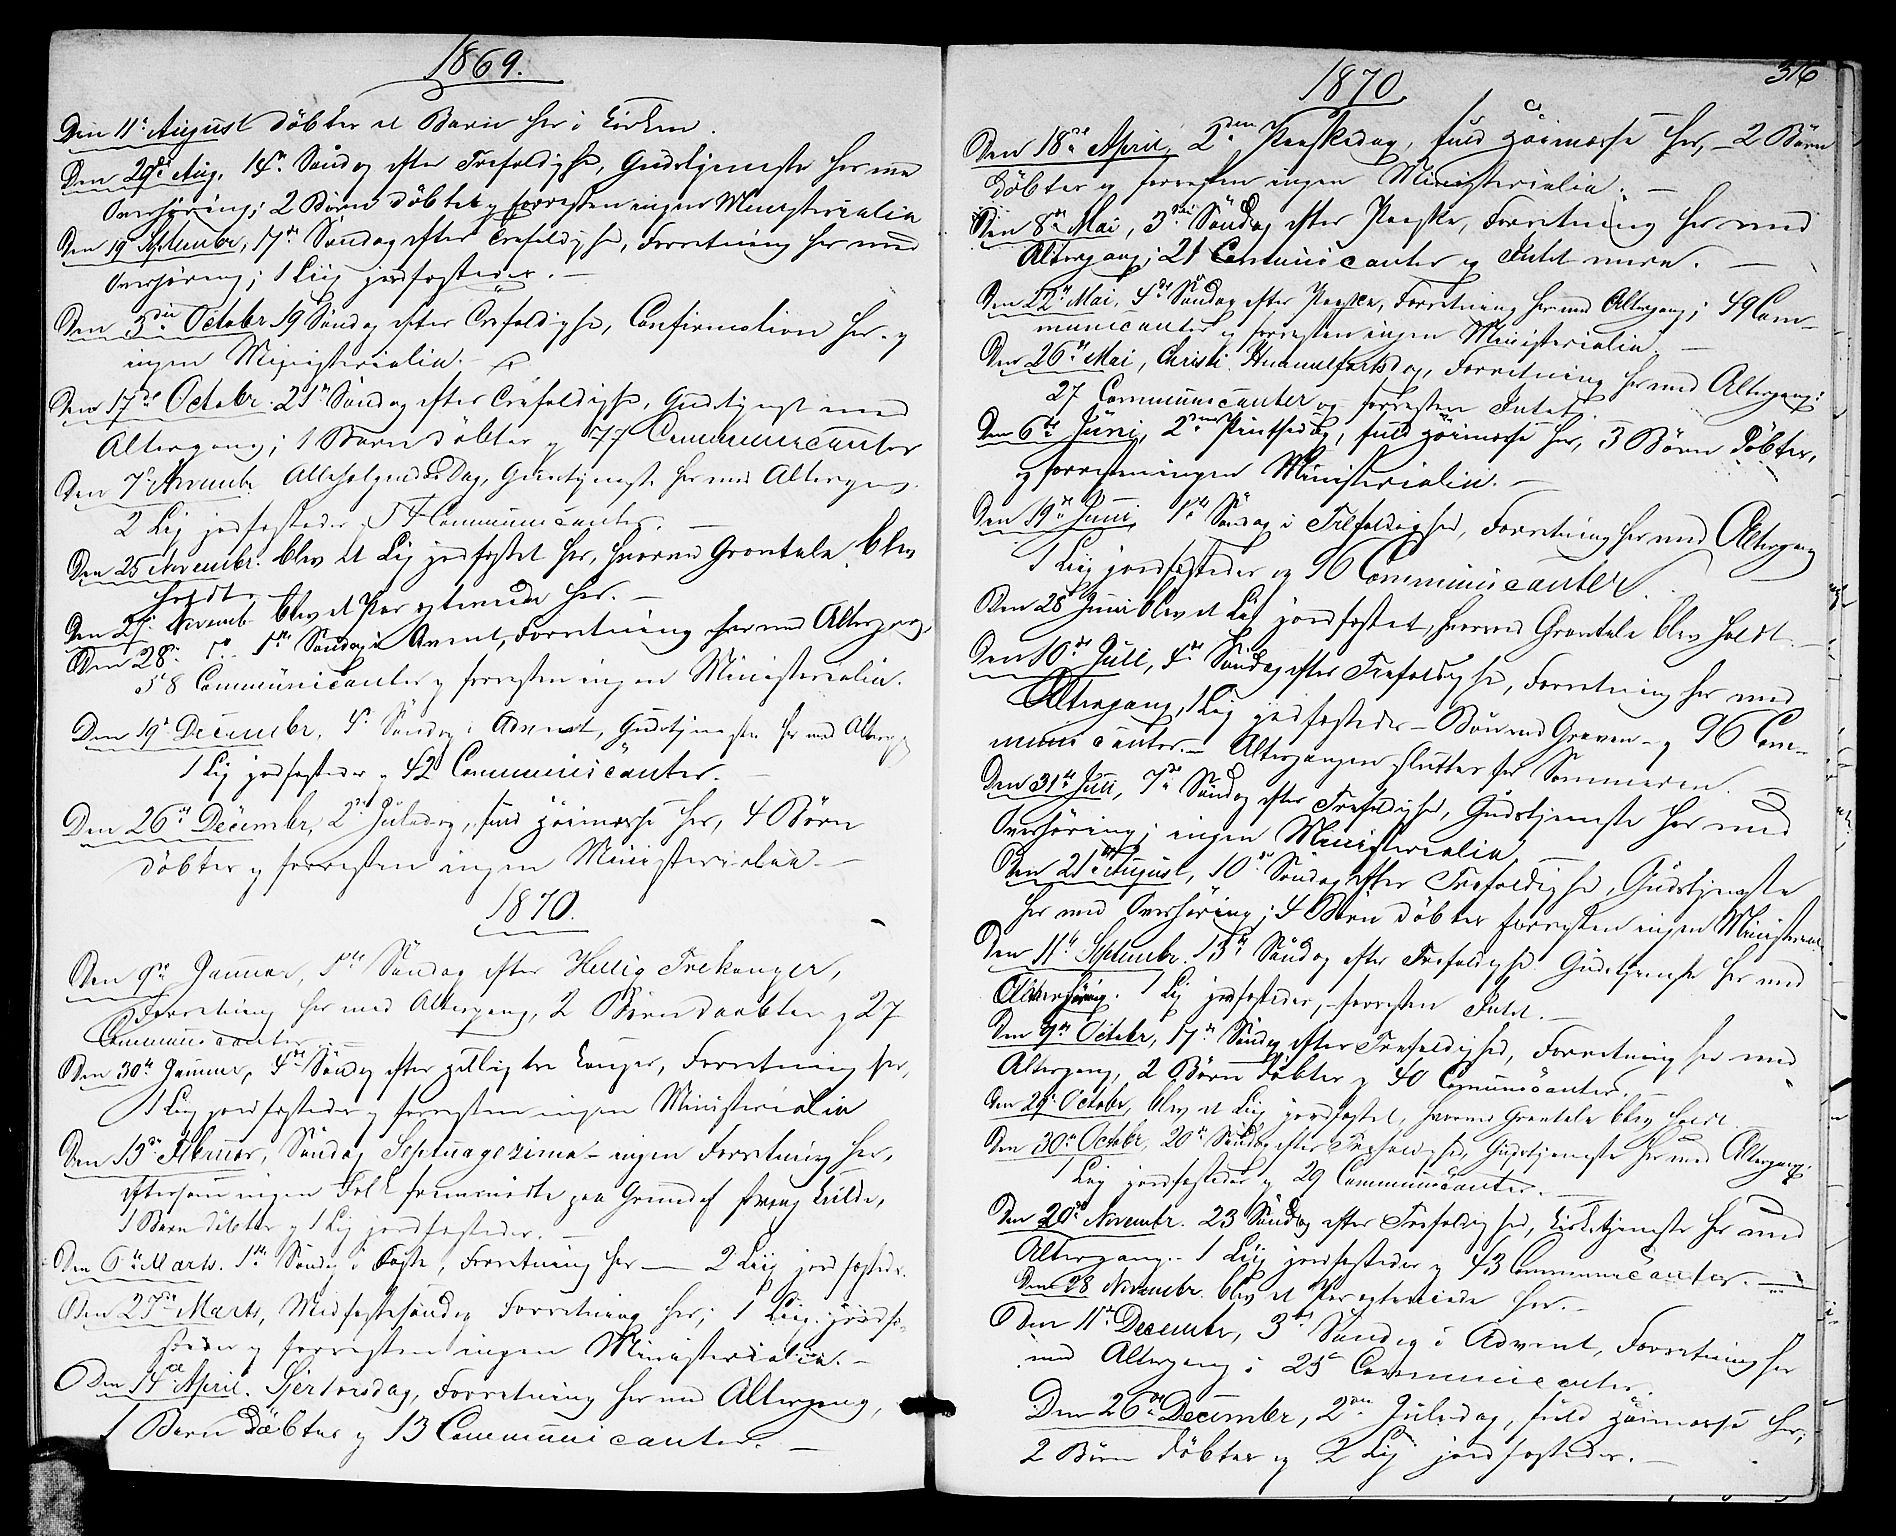 1869.
Den 11te August döbtes et Barn her i Kirken.
Den 29de Aug, 14de Söndag efter Trefoldighed, Gudstjeneste her med
Overhöring; 2 Börn döbtes og forresten ingen Ministerialia
Den 19 Septembr, 17de Söndag efter Trefoldighed, Forretning her med
Overhöring; 1 Liig jordfæstedes. –
Den 3die Octobr 19 Söndag efter Trefoldighed, Confirmation her og
ingen Ministerialia. –
Den 17de Octobr. 21de Söndag efter Trefoldighed, Gudstjenest med
Altergang; 1 Barn döbtes og 77 Communicanter
Den 7de Novembr Allehelgensdag, Gudstjeneste her med Altergang.
2 Lig jordfæstedes, 54 Communicanter. –
Den 25 Novembr. blev et Lig jordfæstet her, hvorved Gravtale blev
holdt. –
Den 27 Novemb blev et Par egteviede her. –
Den 28de 1ste Söndag i Avent, Forretning her med Altergang,
58 Communicanter og forresten ingen Ministerialia.
Den 19de Decembr, 4de Söndag i Advent, Gudstjeneste her med Altergg
1 Lig jordfæstedes og 42 Communicanter. –
Den 26de Decembr, 2den Juledag, fuld Höimesse her, 4 Börn
döbtes og forresten ingen Ministerialia. –
1870.
Den 9de Januar, 1ste Söndag efter Hellig Trekonger,
Forretning her med Altergang, 2 Börn döbtes og 27
Communicanter. –
Den 30te Januar, 4de Söndag efter Hellig tre Konger, Forretning her,
1 Lig jordfæstedes og forresten ingen Ministerialia
Den 13de Februar, Söndag Septuagesima – ingen Forretning her,
eftersom ingen Folk fremmödte paa Grund af streng Kulde,
1 Barn döbtes og 1 Lig jordfæstedes. –
Den 6te Marts. 1ste Söndag i Faste, Forretning her – 2 Liig jordfæstedes.
Den 27de Marts, Midfastesöndag Forretning her; 1 Liig jordfæ-
stedes og forresten ingen Ministerialia. –
Den 14de April. Skjertorsdag, Forretning her med Altergang,
1 Barn döbtes og 13 Communicanter. –
316
1870
Den 18de April, 2den Paaskedag, fuld Höimesse her, – 2 Börn
döbtes og forresten ingen Ministerialia. –
Den 8de Mai, 3die Söndag efter Paaske, Forretning her med
Altergang; 21 Communicanter og Intet mere. –
Den 22de Mai, 4de Söndag efter Paaske, Forretning her med Altergang; 49 Com-
municanter og forresten ingen Ministerialia. –
Den 26de Mai, Christi Himmelfartsdag, Forretning her med Altergang;
27 Communicanter og forresten Intet.
Den 6te Juni, 2den Pintsedag, fuld Höimesse her, 3 Börn döbtes,
og forresten ingen Ministerialia. –
Den 19de Juni, 1ste Söndag i Trefoldighed, Forretning her med Altergang
1 Liig jordfæstedes og 96 Communicanter.
Den 28 Juni blev et Lig jordfæstet, hvorved Gravtale blev holdt. –
Den 10de Juli, 4de Söndag efter Trefoldighed, Forretning her med
Altergang, 1 Lig jordfæstedes – Bön ved Graven – og 96 Com-
municanter. – Altergangen slutter for Sommeren. –
Den 31te Juli, 7de Söndag efter Trefoldighed, Gudstjeneste her med
Overhöring; ingen Ministerialia
Den 21de August, 10de Söndag efter Trefoldighed, Gudstjeneste
her med Overhöring; 4 Börn döbtes forresten ingen Ministerial.
Den 11te Septembr. 13de Söndag efter Trefoldighed Gudstjeneste her med
1 Lig jordfæstedes, – forresten Intet. –
Den 9de Octobr, 17de Söndag efter Trefoldighed, Forretning her med
Altergang, 2 Börn döbtes og 40 Communicanter. –
Den 29de Octobr, blev et Liig jordfæstet, hvorved Gravtale blev holdt. –
Den 30te Octobr, 20de Söndag efter Trefoldighed, Gudstjeneste her med Altergang;
1 Liig jordfæstedes og 29 Communicanter. –
Den 20de Novembr. 23 Söndag efter Trefoldighed, Kirketjeneste her med
Altergang. – 1 Liig jordfæstedes og 43 Communicanter. –
Den 28 Novembr. blev et Par egteviede her. –
Den 11te Decembr, 3die Söndag i Advent, Forretning her
med Altergang; 25 Communicanter.
Den 26de Decembr, 2den Juledag, fuld Höimesse her,
2 Börn döbtes og 2 Lig jordfæstedes. –